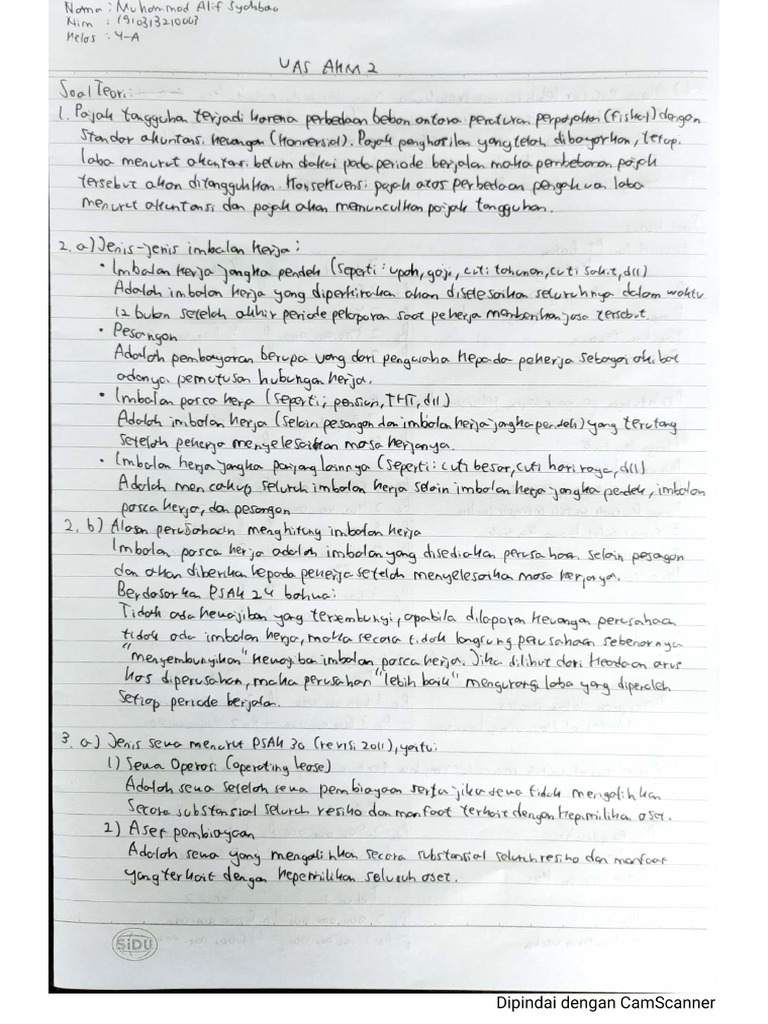 Nama : Muhammad Alif Syahbao
Nim : 1910313210003
Kelas : 4-A
UAS AKM 2
Soal Teori:
1. Pajak tangguhan terjadi karena perbedaan beban antara peraturan perpajakan (fiskal) dengan
standar akuntansi keuangan (Komersial). Pajak penghasilan yang telah dibayarkan, tetapi
laba menurut akuntansi belum diakui pada periode berjalan maka pembebanan pajak
tersebut akan ditangguhkan. Konsekuensi pajak atas perbedaan pengakuan laba
menurut akuntansi dan pajak akan memunculkan pajak tangguhan.
2. a) Jenis-jenis imbalan kerja :
• Imbalan kerja jangka pendek (seperti : upah, gaji, cuti tahunan, cuti sakit, dll)
Adalah imbalan kerja yang diperkirakan akan diselesaikan seluruhnya dalam waktu
12 bulan setelah akhir periode pelaporan saat pekerja memberikan jasa tersebut.
• Pesangon
Adalah pembayaran berupa uang dari pengusaha kepada pekerja sebagai akibat
adanya pemutusan hubungan kerja.
• Imbalan pasca kerja (seperti; pensiun, THT, dll)
Adalah imbalan kerja (selain pesangon dan imbalan kerja jangka pendek) yang terutang
setelah pekerja menyelesaikan masa kerjanya.
• Imbalan kerja jangka panjang lainnya (seperti : cuti besar, cuti hari raya, dll)
Adalah mencakup seluruh imbalan kerja selain imbalan kerja jangka pendek, imbalan
pasca kerja, dan pesangon
2. b) Alasan perusahaan menghitung imbalan kerja
Imbalan pasca kerja adalah imbalan yang disediakan perusahaan selain pesagon
dan akan diberikan kepada pekerja setelah menyelesaikan masa kerjanya.
Berdasarkan PSAK 24 bahwa:
Tidak ada kewajiban yang tersembunyi, apabila dilaporan keuangan perusahaan
tidak ada imbalan kerja, maka secara tidak langsung perusahaan sebenarnya
"menyembunyikan" kewajiban imbalan pasca kerja. Jika dilihat dari keadaan arus
kas diperusahan, maka perusahan "lebih baik" mengurangi laba yang diperoleh
setiap periode berjalan.
3. a) Jenis sewa menurut PSAK 30 (revisi 2011), yaitu:
1) Sewa Operasi (operating lease)
Adalah sewa setelah sewa pembiayaan serta jika sewa tidak mengalihkan
secara substansial seluruh resiko dan manfaat terkait dengan kepimilikan aset.
2) Aset pembiayaan
Adalah sewa yang mengalihkan secara substansial seluruh resiko dan manfaat
yang terkait dengan kepemilikan seluruh aset.
SiDU
Dipindai dengan CamScanner